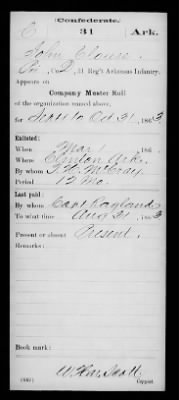 (Confederate.)
C 31 Ark.
John
Co. , 31 Reg't Arkansas Infantry.
Appears on
Company Muster Roll
of the organization named above,
for Sept 1 to Oct 31, 1863
Enlisted:
When Mar 1, 186
Where Clinton Ark.
By whom McCray
Period 12 Mo.
Last paid:
By whom Capt Ragland
To what time Aug 31, 1863
Present or absent Present.
Remarks:
Book mark:
Copyist.